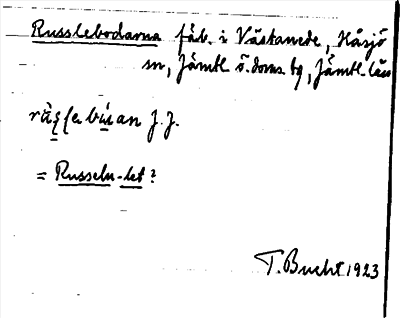 Russlebodarna fäb. i Västanede, Håsjö
sn, Jämtl. ö. doms. tg, Jämtl. län
J.J.
= Russeln-let?
T. Bucht 1923